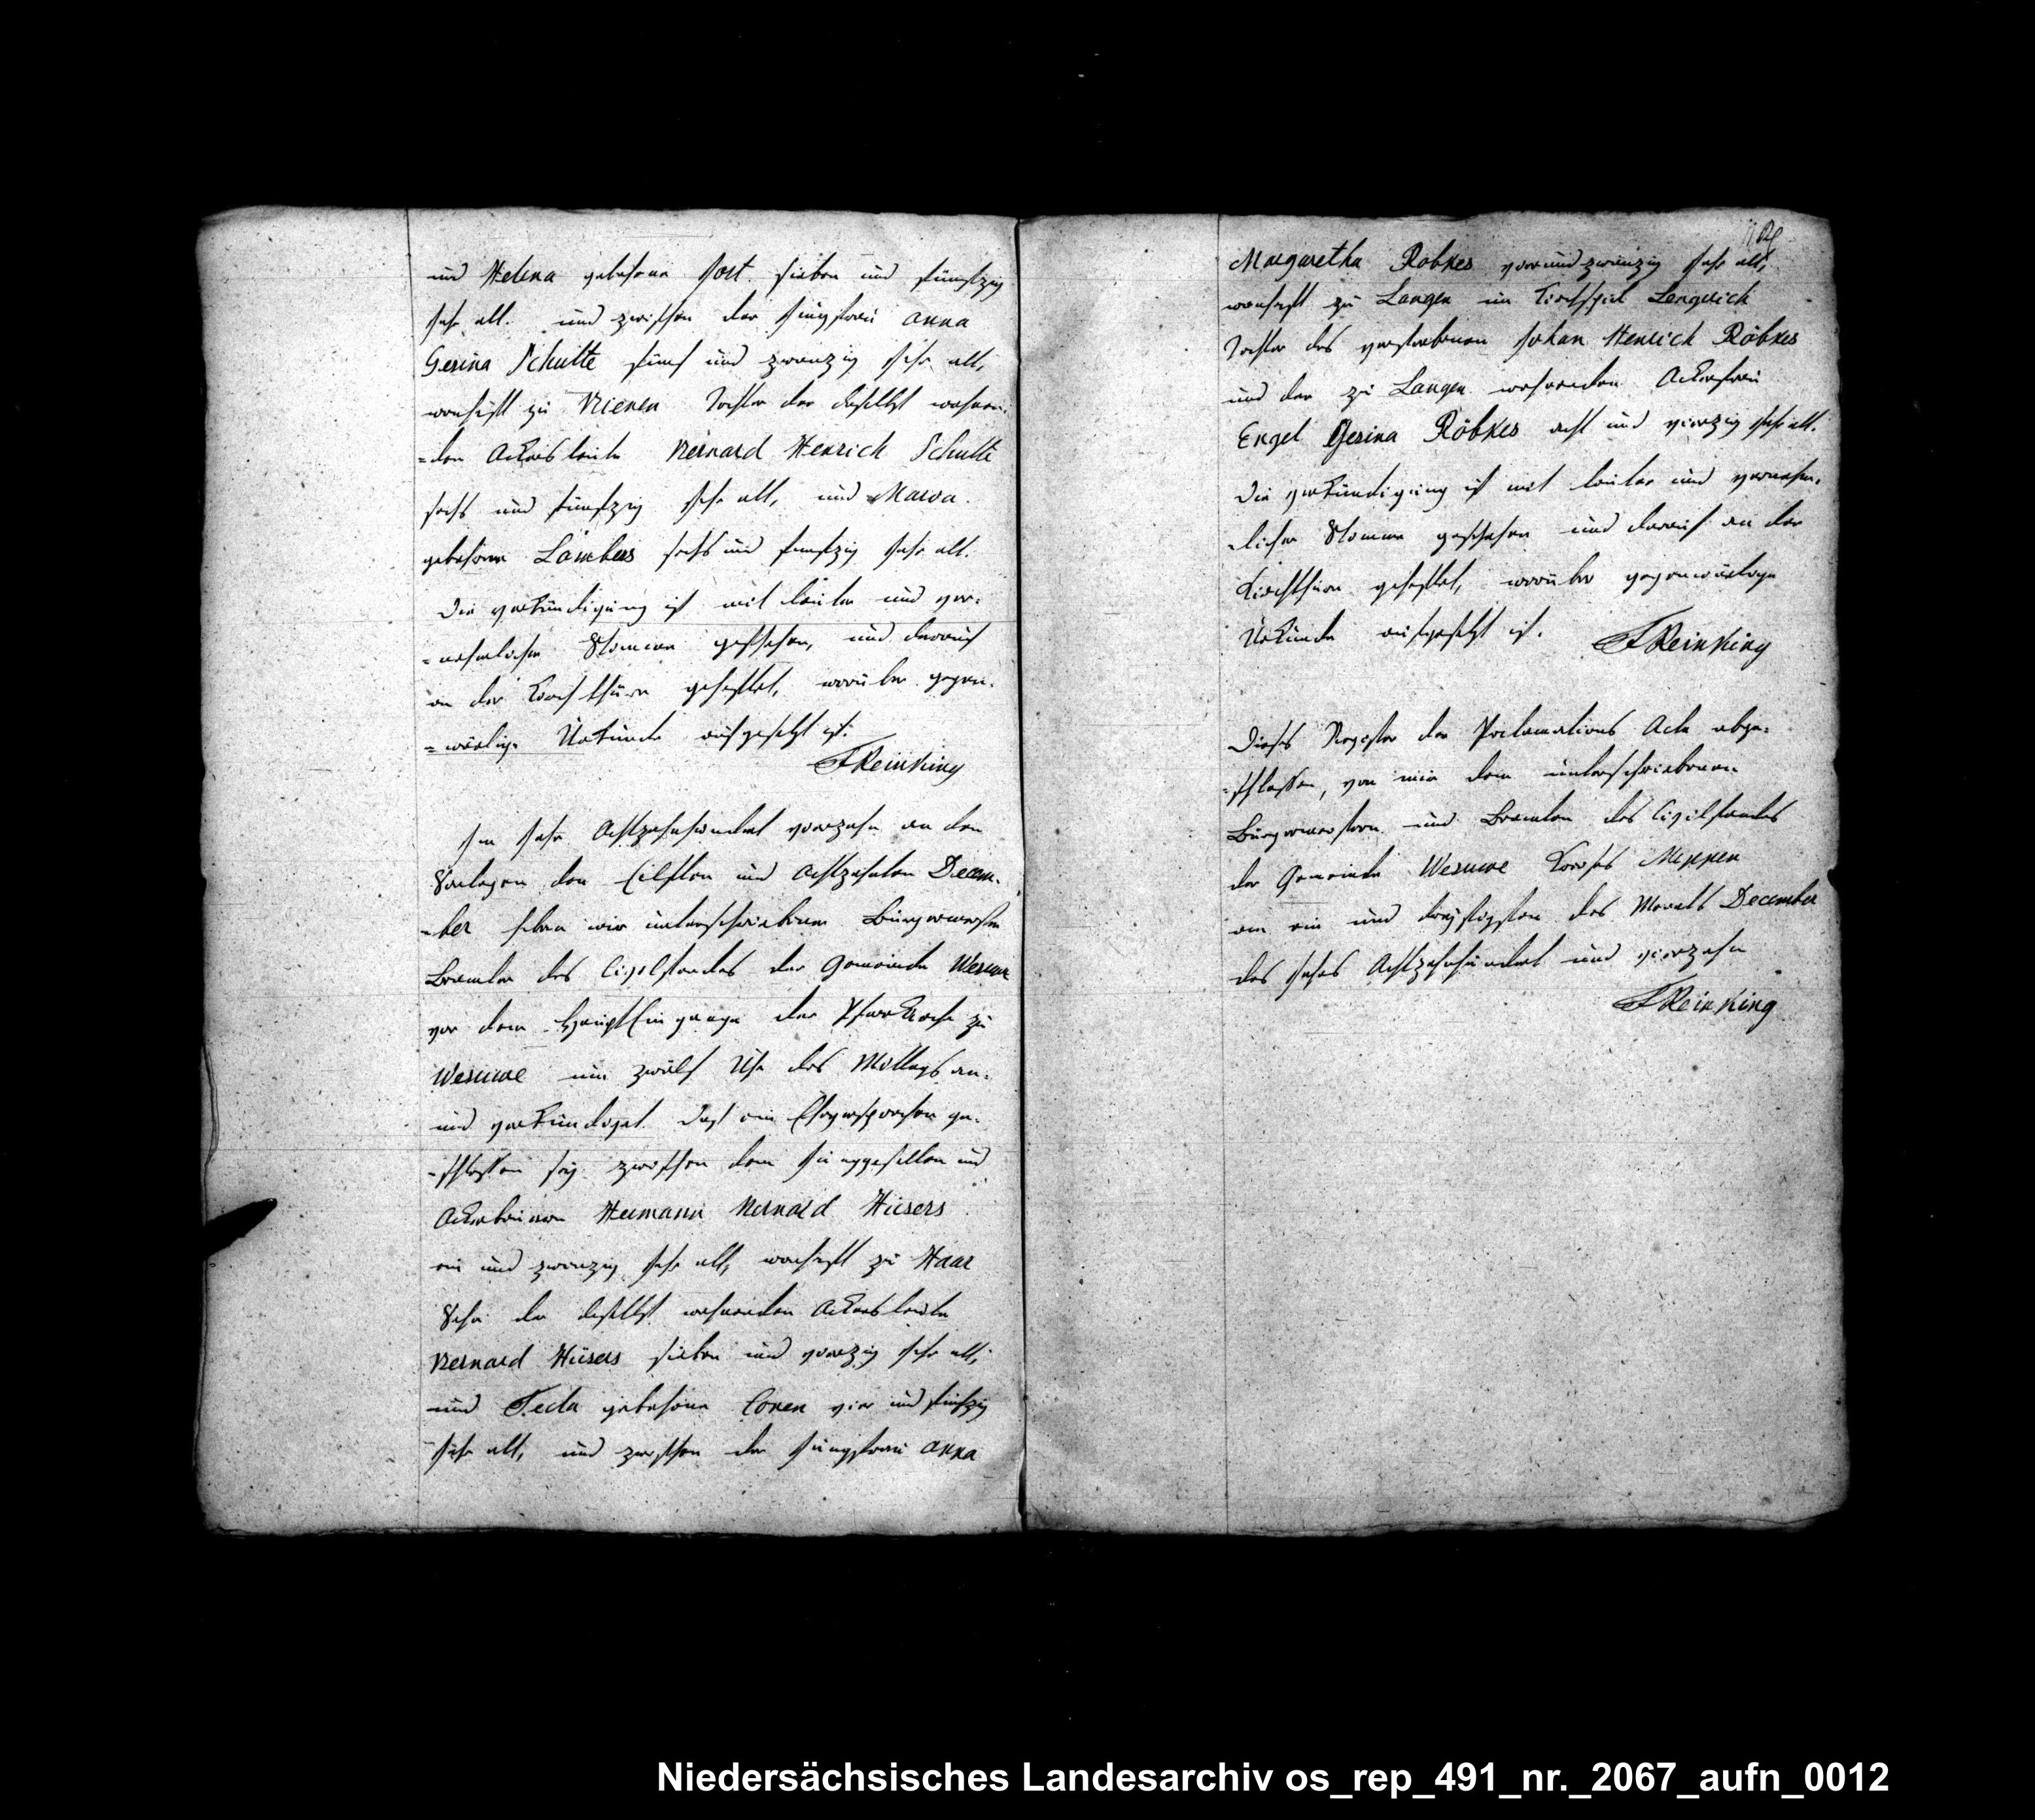 und Helena gebohrne Jost sieben und fünfzig
Jahr alt. und zwischen der Jungfrau Anna
Gesina Schulte fünf und zwanzig Jahr alt,
wonhaft zu Versen Tochter der daselbst wohnen-
=den Ackersleute Bernard Henrich Schulte
sechs und fünfzig Jahr alt, und Maria
gebohrne Lambers sechs und funfzig Jahr alt.
Die verkündigung ist mit lauter und ver-
=nehmlicher Stimme geschehen, und darauf
an der Kirchthüre geheftet, worüber gegen-
=wärtige Urkunde aufgesetzt ist.
FReinking
Im Jahr Achtzehnhundert vierzehn an den
Sontagen den Eilften und Achtzehnten Decem-
=ber haben wir unterschriebener Bürgermeister
Beamter des Civilstandes der Gemeinde Wesuwe
vor dem HauptEingange der Pfarrkirche zu
Wesuwe um zwölf Uhr des Mittags an-
und verkündiget. Daß ein Eheversprechen ge-
=schlossen sey zwischen dem Junggesellen und
Ackersmann Hermann Bernard Hüsers
ein und zwanzig Jahr alt, wonhaft zu Haar
Sohn der daselbst wohnenden Ackersleute
Bernard Hüsers sieben und vierzig Jahr alt,
und Tecla gebohrne Conen vier und fünfzig
Jahr alt, und zwischen der Jungfrau Anna
Margaretha Robkes vier und zwanzig Jahr alt,
wonhaft zu Langen im Kirchspiel Lengerich
Tochter des verstorbenen Johan Henrich Röbkes
und der zu Langen wohnenden Ackersfrau
Engel Gesina Röbkes acht und vierzig Jahr alt.
Die verkündigung ist mit lauter und vernehm-
=licher Stimme geschehen und darauf an der
Kirchthüre geheftet, worüber gegenwärtige
Urkunde aufgesetzt ist.
FReinking
Dieses Register der Proclamations Acte abge-
=schlossen, von mir dem unterschriebenen
Bürgermeistern und Beamten des Civilstandes
der Gemeinde Wesuwe Kreises Meppen
am ein und dreyßigsten des Monats December
des Jahres Achtzehnhundert und vierzehn
FReinking
Niedersächsisches Landesarchiv os_rep_491_nr._2067_aufn_0012